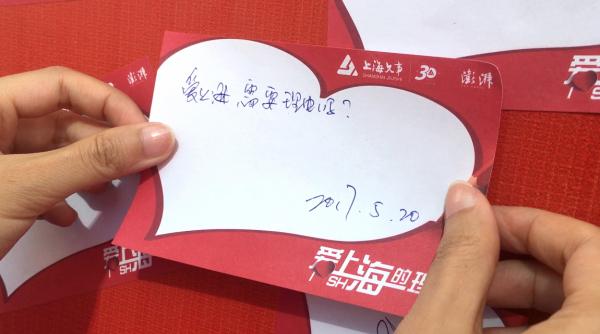 上海久事 SHANGHAI JIUSHI 30 澎湃
爱上海需要理由吗?
2017.5.20
爱上海的理
I SH
澎湃
爱
I SH
爱上
I SH